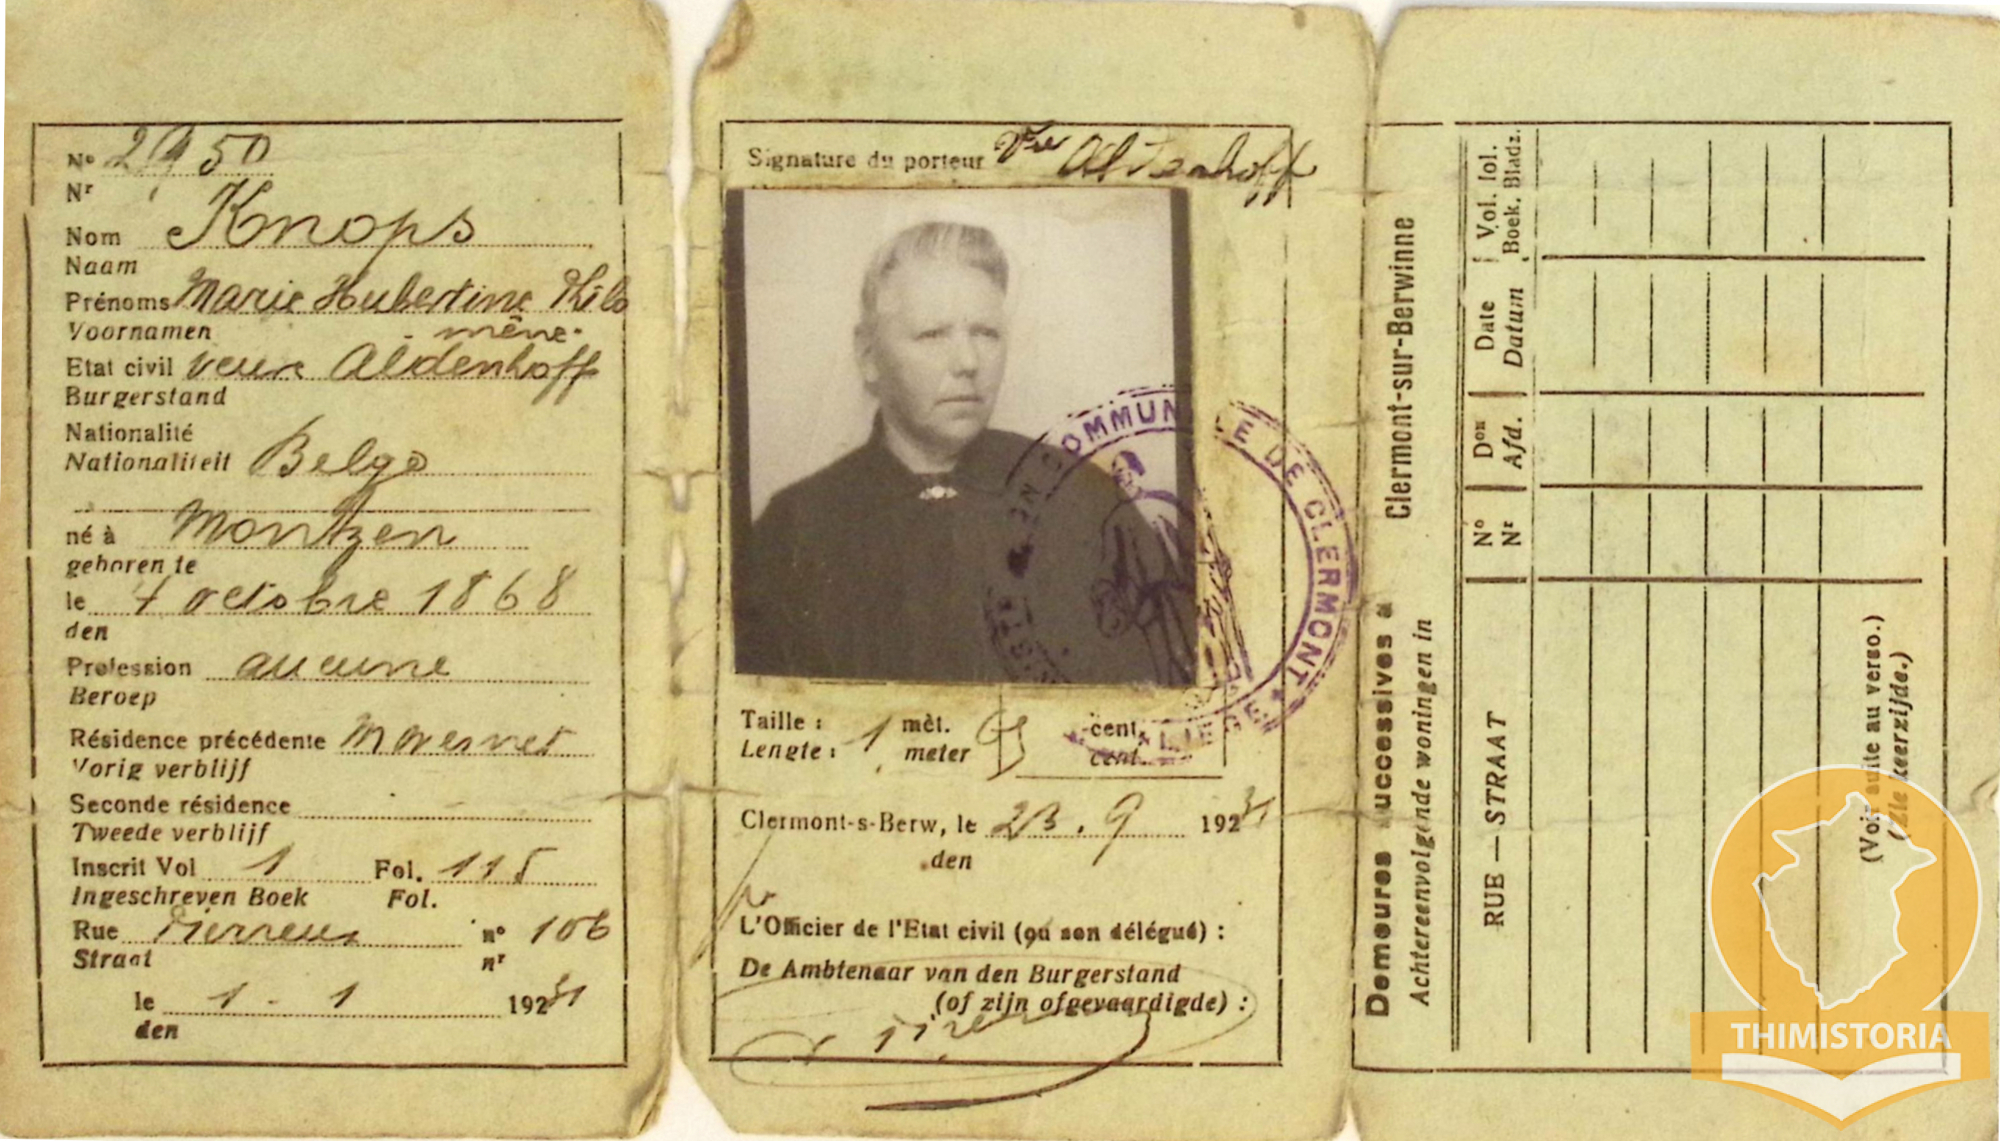 Nº 2950
Nr
Nom Knops
Naam
Prénoms Marie Hubertine Philo
Voornamen - mène -
Etat civil veuve Aldenhoff
Burgerstand
Nationalité
Nationaliteit Belge
né à Montzen
geboren te
le 7 octobre 1868
den
Profession aucune
Beroep
Résidence précédente Moresnet
Vorig verblijf
Seconde résidence
Tweede verblijf
Inscrit Vol 1 Fol. 115
Ingeschreven Boek Fol.
Rue nº 106
Straat nr
le 1 - 1 1931
den
Signature du porteur Vve Aldenhoff
COMMUNE DE CLERMONT
LIEGE
Taille : 1 mèt. cent.
Lengte : meter cent.
Clermont-s-Berw, le 23. 9 1931
den
L'Officier de l'Etat civil (ou son délégué) :
De Ambtenaar van den Burgerstand
(of zijn ofgevaardigde) :
Demeures successives à Clermont-sur-Berwinne
Achtereenvolgende woningen in
RUE — STRAAT
Nº
Nr
Don
Afd.
Date
Datum
Vol. fol.
Boek. Bladz.
(Voir suite au verso.)
(Zie keerzijde.)
THIMISTORIA